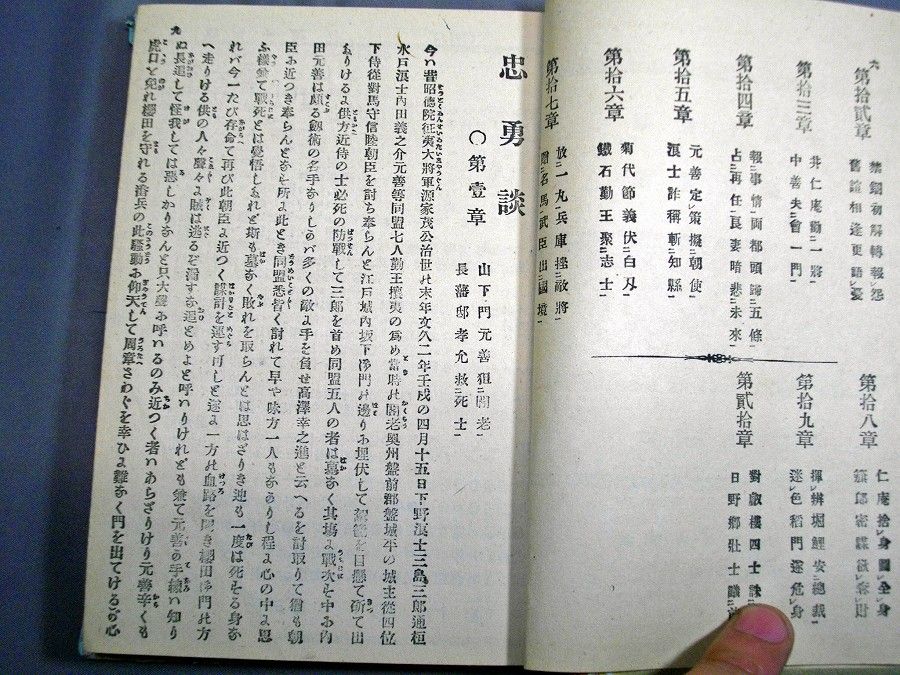 六
第拾貳章
禁錮初解轉報怨
舊誼相逢更語憂
第拾三章
井仁庵勤一將
中善夫會一門
第拾四章
報事情両都頭歸五條
占再任良妻暗悲未來
第拾五章
元善定策擬朝使
浪士詐稱斬知縣
第拾六章
菊代節義伏白刄
鐵石勤王聚志士
第拾七章
放一丸兵庫挫敵將
贈名馬武臣出國境
第拾八章
仁庵捨身圖全身
第拾九章
揮辨堀鯉安總裁
迷色稻門遂危身
第貳拾章
對敵樓四士
日野鄉壯士議
忠勇談
〇第壹章
山下門元善狙閣老
長藩邸孝允救死士
今ハ昔昭德院征夷大將軍源家茂公治世の末年文久二年壬戌の四月十五日下野浪士三島三郎通桓
水戸浪士内田義之介元善等同盟七人勤王攘夷の爲め當時の閣老奥州磐前郡磐城平の城主從四位
下侍從對馬守信陸朝臣を討ち奉らんと江戸城内坂下御門の邊りに埋伏して
ありけるよ供方近侍の士必死の防戰して三郎を首め同盟五人の者は墓なく其塲よ戰次そ中に内
田元善は頗る劔術の名手なりしかバ多くの敵よ手を負せ高澤幸之進と云へるを討取りて猶も朝
臣に近つき奉らんとなせ所よ此とき同盟悉皆く討れて早や味方一人もなありし程よ心の中よ思
ふ樣兼て戰死とは覺悟しあれど斯も墓なく敗れを取らんとは思はざりき迚も一度は死そる身な
れバ今一たび存命て再び此朝臣よ近つく謀計を運す可しと遂よ一方の血路を開き櫻田御門の方
へ走りける供の人々聲々よ賊は逃るぞ溜すな追とめよと呼ハりけれども兼て元善の手練ハ知り
ぬ長追して怪我しては惡しかりなんと只大聲に呼いるのみ近つく者ハあらざりけり元善辛くも
虎口を免れ櫻田を守れる浴兵の此騷動に仰天して周章さわぐを幸ひよ難なく門を出てけるが心
九